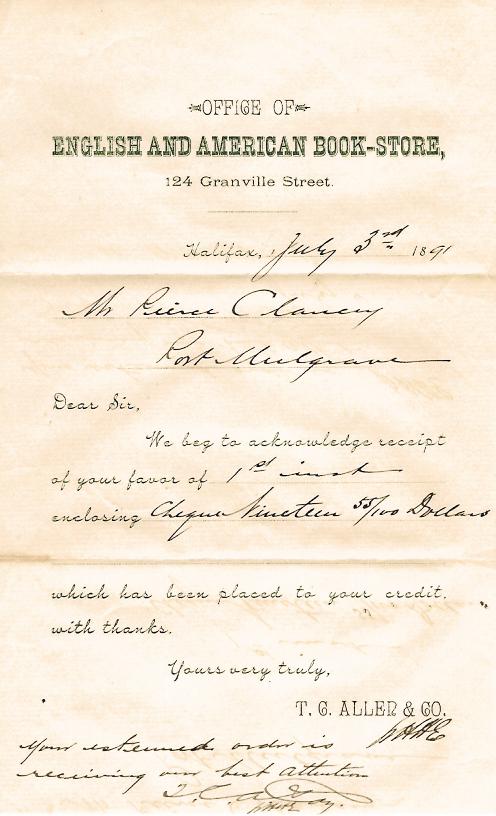 OFFICE OF
ENGLISH AND AMERICAN BOOK-STORE,
124 Granville Street.
Halifax, July 3rd 1891
Mr Pierce Clancy
Port Mulgrave
Dear Sir,
We beg to acknowledge receipt
of your favor of 1st inst
enclosing Cheque Nineteen 55/100 Dollars
which has been placed to your credit,
with thanks.
Yours very truly,
T. C. ALLEN & CO.
Your esteemed order is
receiving our best attention
T. C. A